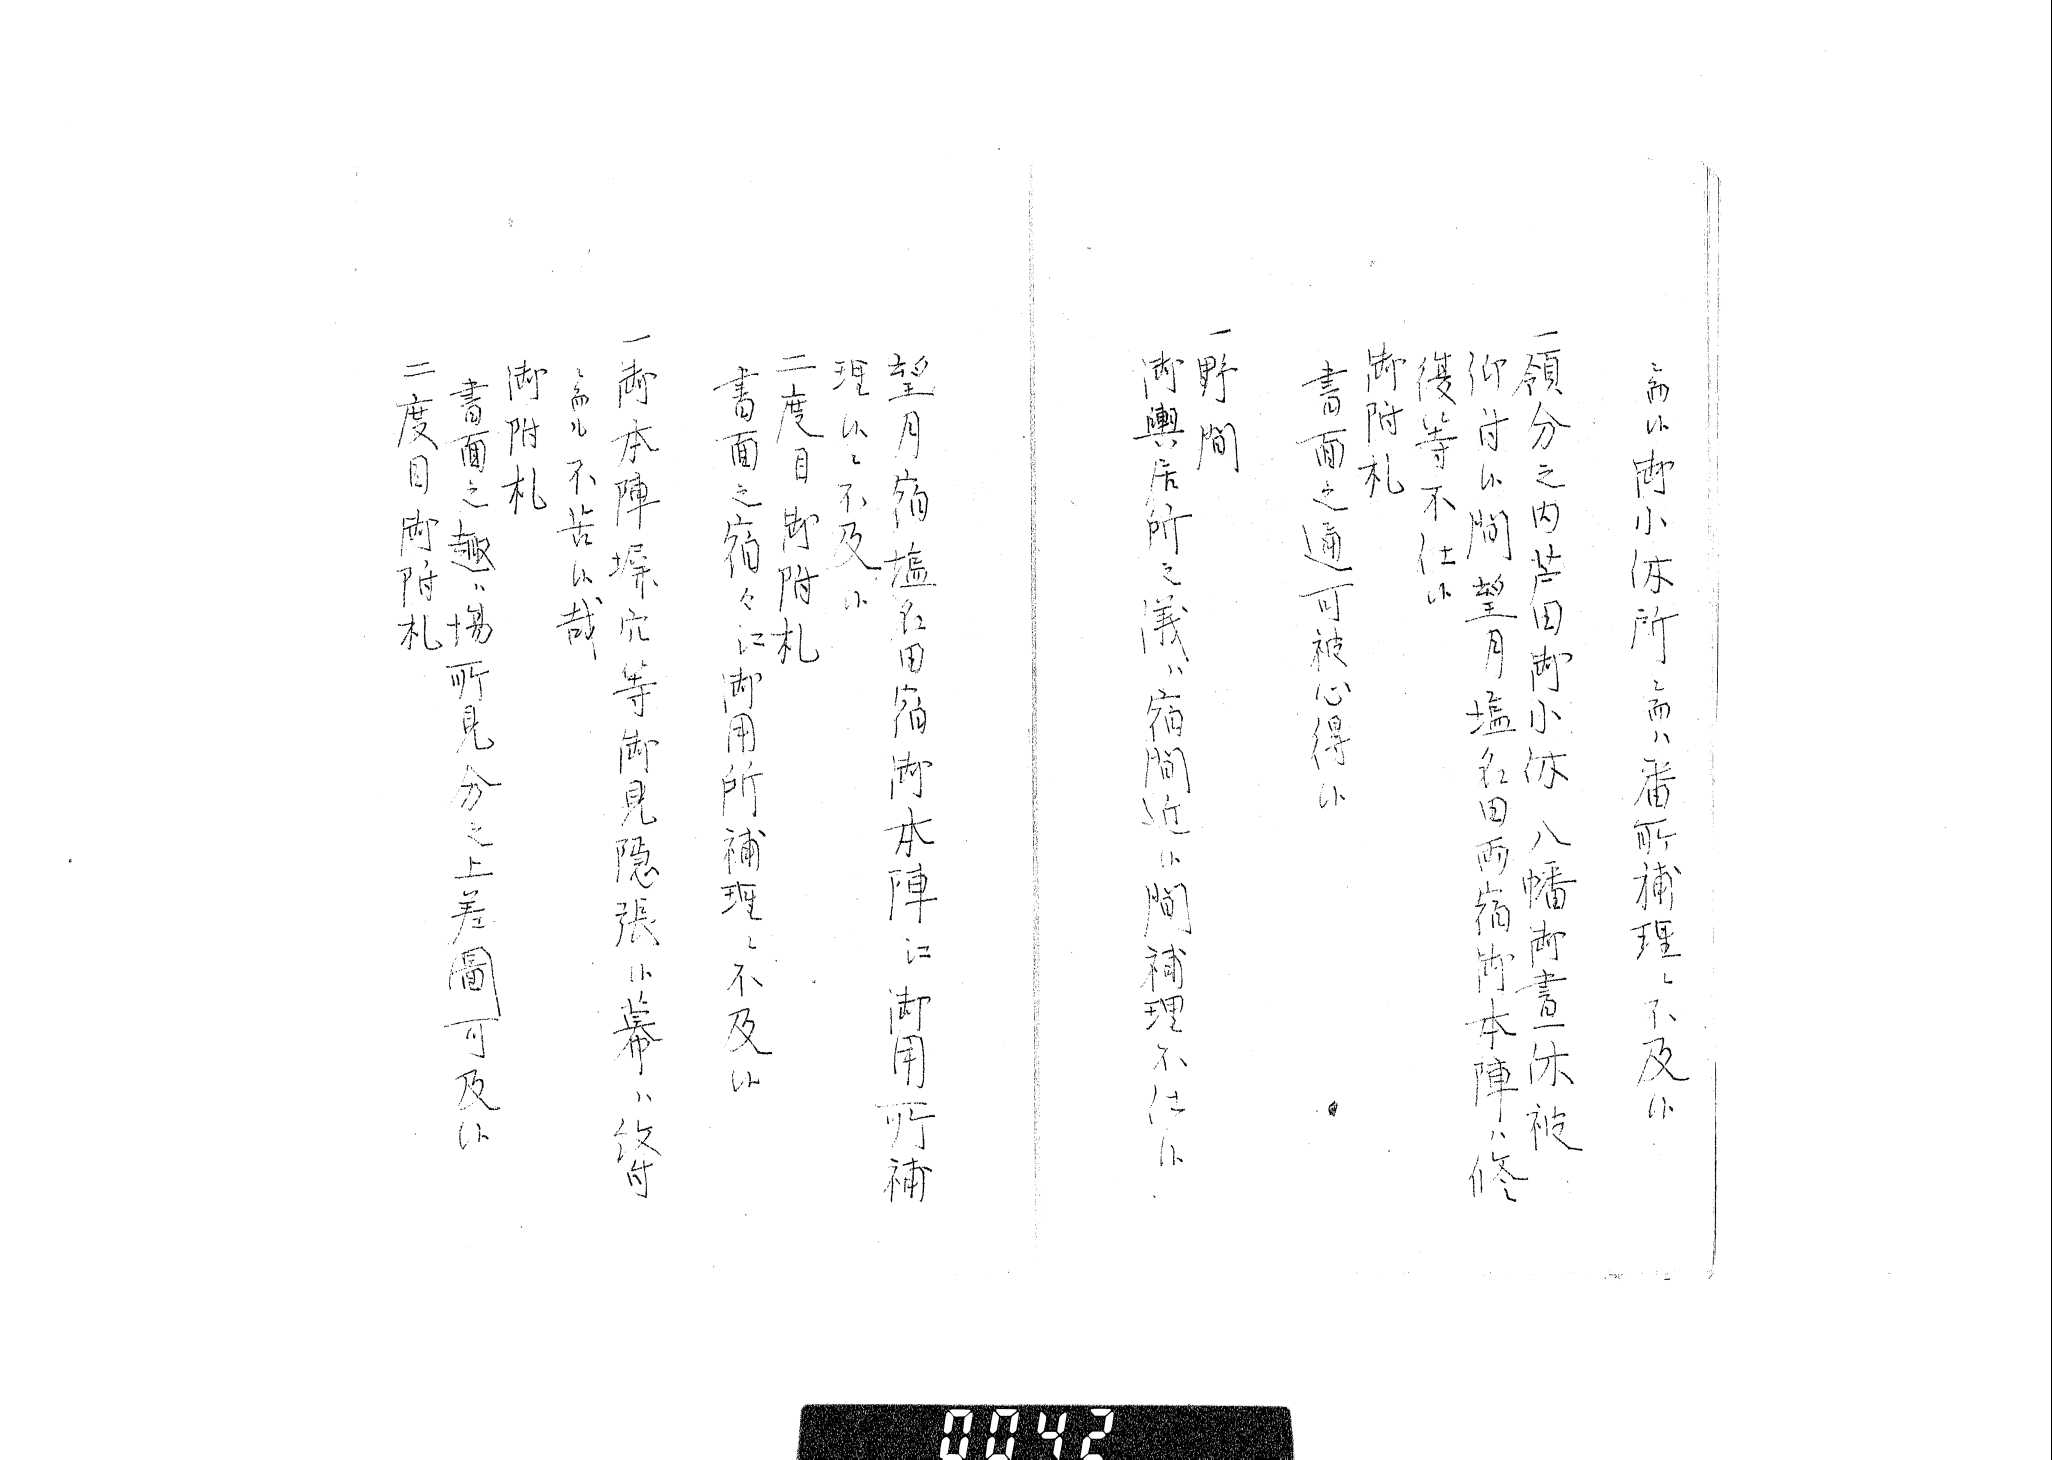 ニ而候御小休所ニ而ハ番所補理ニ不及候
一領分之内芦田御小休八幡御昼休被
仰付候間望月塩名田両宿御本陣ハ修
復等不仕候
御附札
書面之通可被心得候
一野間
御輿居所之儀ハ宿間近候間補理不仕候
望月宿塩名田宿御本陣江御用所補
理候ニ不及候
二度目御附札
書面之宿々江御用所補理ニ不及候
一御本陣塀穴等御見隠張候幕ハ紋付
ニ而も不苦候哉
御附札
書面之趣ハ場所見分之上差圖可及候
二度目御附札
0042